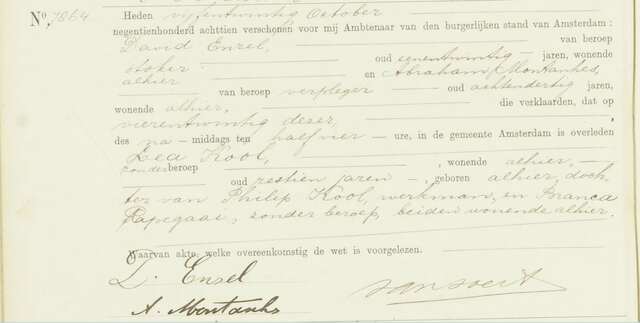 No. 7864
Heden vijfentwintig October
negentienhonderd achttien verschenen voor mij Ambtenaar van den burgerlijken stand van Amsterdam:
David Ensel, van beroep
stoker oud eenentwintig jaren, wonende
alhier en Abraham Montanhes,
van beroep verpleger oud achtendertig jaren,
wonende alhier, die verklaarden, dat op
vierentwintig dezer,
des na-middags ten half vier ure, in de gemeente Amsterdam is overleden
Lea Kool,
zonder beroep, wonende alhier,
oud zestien jaren, geboren alhier, doch-
ter van Philip Kool, werkman, en Branca
Papegaai, zonder beroep, beiden wonende alhier.
Waarvan akte, welke overeenkomstig de wet is voorgelezen.
D. Ensel
A. Montanhes